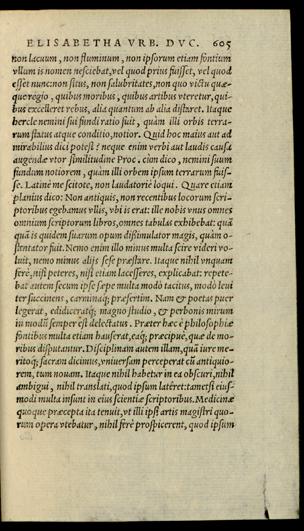 ELISABETHA VRB. DVC. 605
non lacuum, non fluminum, non ipsorum etiam fontium
vllum is nomen nesciebat, vel quod prius fuisset, vel quod
esset nunc: non situs, non salubritates, non quo victu quæ-
que regio, quibus moribus, quibus artibus vteretur, qui-
bus excelleret rebus, alia quantum ab alia distaret. Itaque
hercle nemini sui fundi ratio fuit, quàm illi orbis terra-
rum status atque conditio, notior. Quid hoc maius aut ad
mirabilius dici potest? neque enim verbi aut laudis causa
augendæ vtor similitudine Proc. cùm dico, nemini suum
fundum notiorem, quàm illi orbem ipsum terrarum fuis-
se. Latinè me scitote, non laudatoriè loqui. Quare etiam
planius dico: Non antiquis, non recentibus locorum scri-
ptoribus egebamus vllis, vbi is erat: ille nobis vnus omnes
omnium scriptorum libros, omnes tabulas exhibebat: quã
quã is quidem suarum opum dissimulator magis, quàm o-
stentator fuit. Nemo enim illo minus multa scire videri vo-
luit, nemo minus alijs sese præstare. Itaque nihil vnquam
ferè, nisi peteres, nisi etiam lacesseres, explicabat: repete-
bat autem secum ipse sæpe multa modò tacitus, modò leui
ter succinens, carminaq; præsertim. Nam & poetas puer
legerat, edidiceratq; magno studio, & perbonis mirum
in modũ semper est delectatus. Præter hæc è philosophiæ
fontibus multa etiam hauserat, eaq; præcipuè, quæ de mo-
ribus disputantur. Disciplinam autem illam, quã iure me-
ritoq; sacram dicimus, vniuersam perceperat cũ antiquio-
rem, tum nouam. Itaque nihil habetur in ea obscuri, nihil
ambigui, nihil translati, quod ipsum lateret: tametsi eius-
modi multa insunt in eius scientiæ scriptoribus. Medicinæ
quoque præcepta ita tenuit, vt illi ipsi artis magistri quo-
rum opera vtebatur, nihil ferè prospicerent, quod ipsum